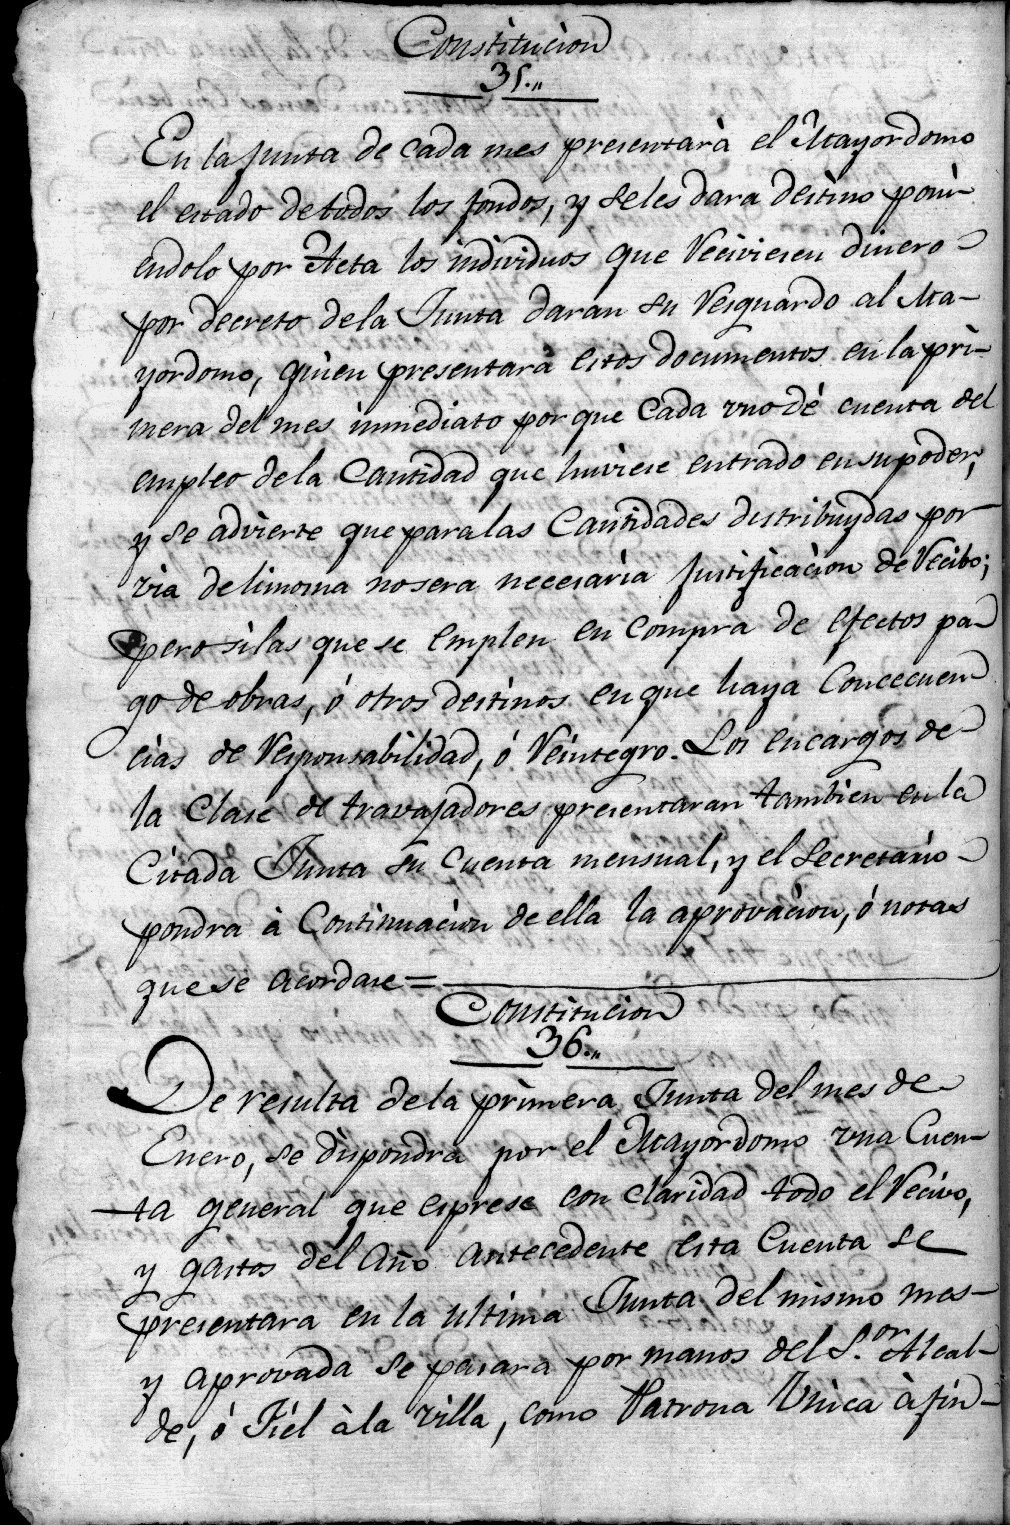 Constitucion
35.,,
En la Junta de cada mes presentarà el Mayordomo
el estado de todos los fondos, y se les dara destino poni-
endolo por Acta los individuos que Recivieren dinero
por decreto de la Junta daràn su Resguardo al Ma-
yordomo, quien presentarà estos documentos en la pri-
mera del mes inmediato por que cada vno dé cuenta del
empleo de la Cantidad que huviere entrado en su poder,
y se advierte que para las Cantidades distribuydas por
via de limosna no sera necesaria Justificacion de Recibo;
pero si las que se emplen en compra de efectos pa-
go de obras, ó otros destinos en que haya Concecuen-
cias de Responsabilidad, ó Reintegro. Los encargos de
la Clase de travajadores presentaran tambien en la
Citada Junta su Cuenta mensual, y el Secretario
pondra à Continuacion de ella la aprovacion, ó notas
que se acordare=
Constitucion
36.,,
De resulta de la primera Junta del mes de
Enero, se dispondra por el Mayordomo vna Cuen-
ta general que esprese con claridad todo el Recivo,
y gastos del Año antecedente esta Cuenta se
presentara en la ultima Junta del mismo mes
y aprovada se pasara por manos del S.or Alcal-
de, ó Fiel à la villa, como Patrona Vnica à fin-